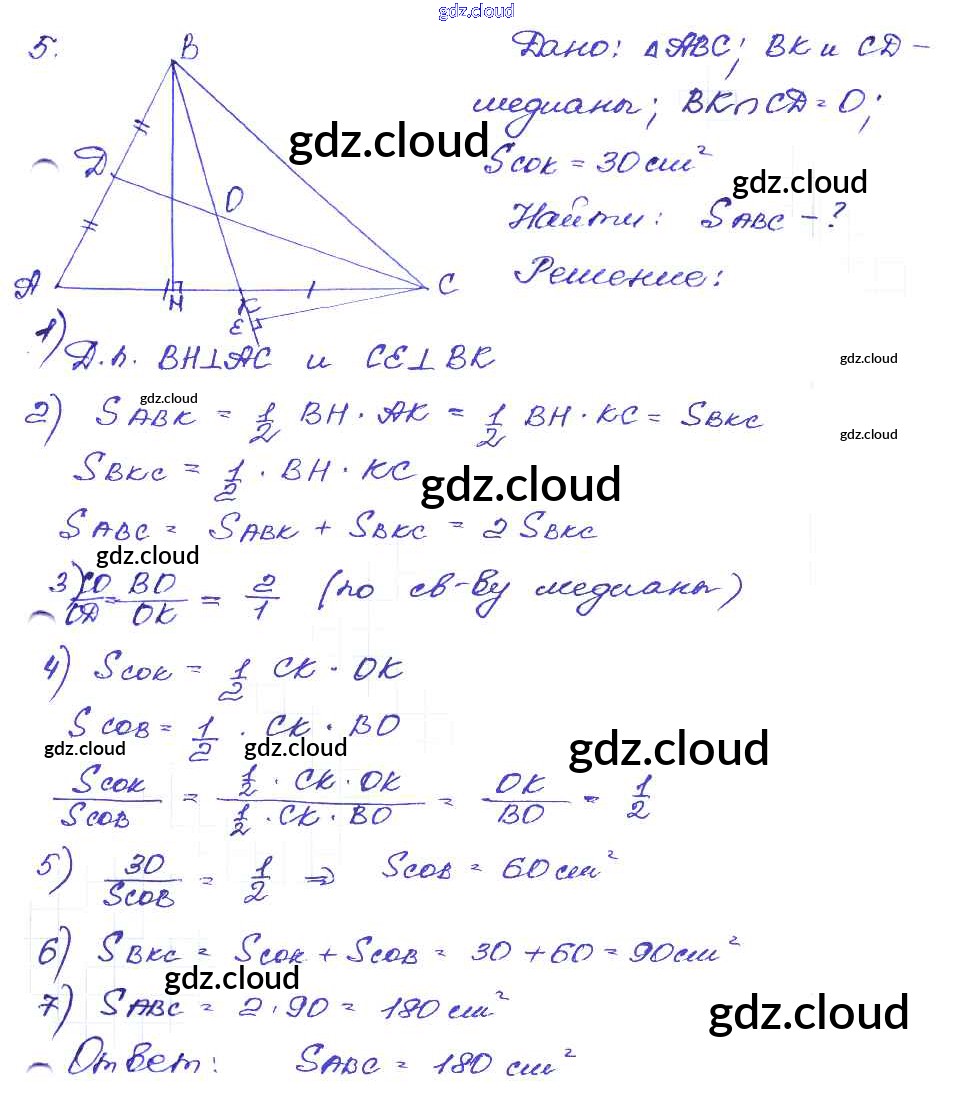 gdz.cloud
5.
B
Дано: △ABC; BK и CD –
медианы; BK∩CD = O;
gdz.cloud
Sсок = 30 см²
D
gdz.cloud
O
Найти: SABC – ?
Решение:
A H K C
E
1) Д.п. BH⊥AC и CE⊥BK
gdz.cloud
gdz.cloud
2) SABK = 1/2 BH · AK = 1/2 BH · KC = SBKC
gdz.cloud
SBKC = 1/2 · BH · KC
gdz.cloud
SABC = SABK + SBKC = 2 SBKC
gdz.cloud
3) CO/OD = BO/OK = 2/1 (по св-ву медианы)
4) Sсок = 1/2 CK · OK
Sсов = 1/2 · CK · BO
gdz.cloud gdz.cloud gdz.cloud
Sсок/Sсов = (1/2 · CK · OK)/(1/2 · CK · BO) = OK/BO = 1/2
5) 30/Sсов = 1/2 ⇒ Sсов = 60 см²
6) SBKC = Sсок + Sсов = 30 + 60 = 90 см²
gdz.cloud
7) SABC = 2 · 90 = 180 см²
gdz.cloud
Ответ: SABC = 180 см²